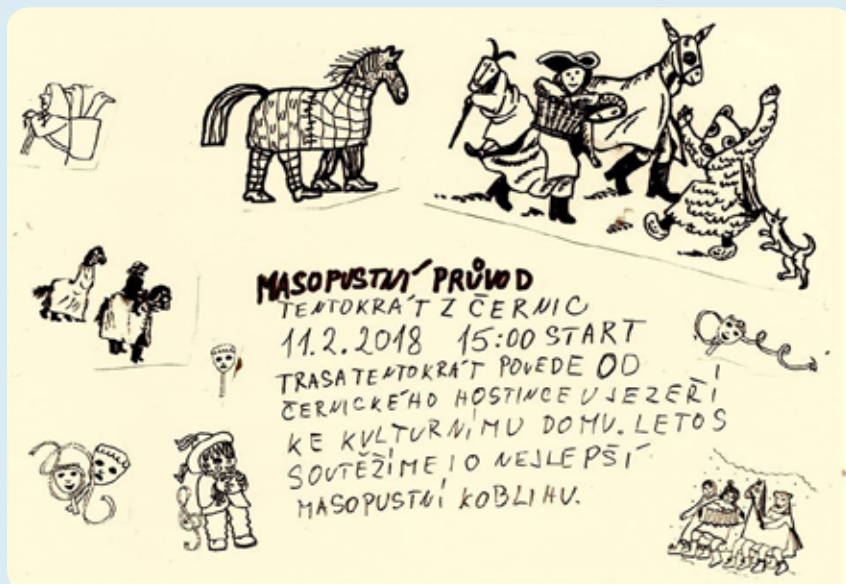 MASOPUSTNÍ PRŮVOD
TENTOKRÁT Z ČERNIC
11.2.2018 15:00 START
TRASA TENTOKRÁT POVEDE OD
ČERNICKÉHO HOSTINCE U JEZEŘÍ
KE KULTURNÍMU DOMU. LETOS
SOUTĚŽÍME I O NEJLEPŠÍ
MASOPUSTNÍ KOBLIHU.